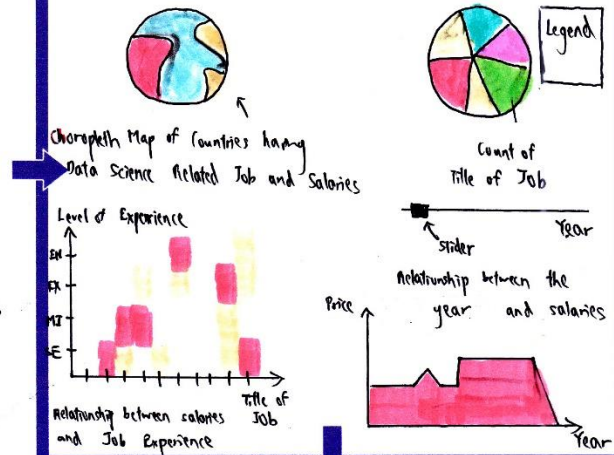 Choropleth Map of Countries having
Data Science Related Job and Salaries
Legend
Count of
Title of Job
Year
slider
Level of Experience
EN
EX
MI
SE
Title of
Job
Relationship between salaries
and Job Experience
Relationship between the
year and salaries
Price
Year